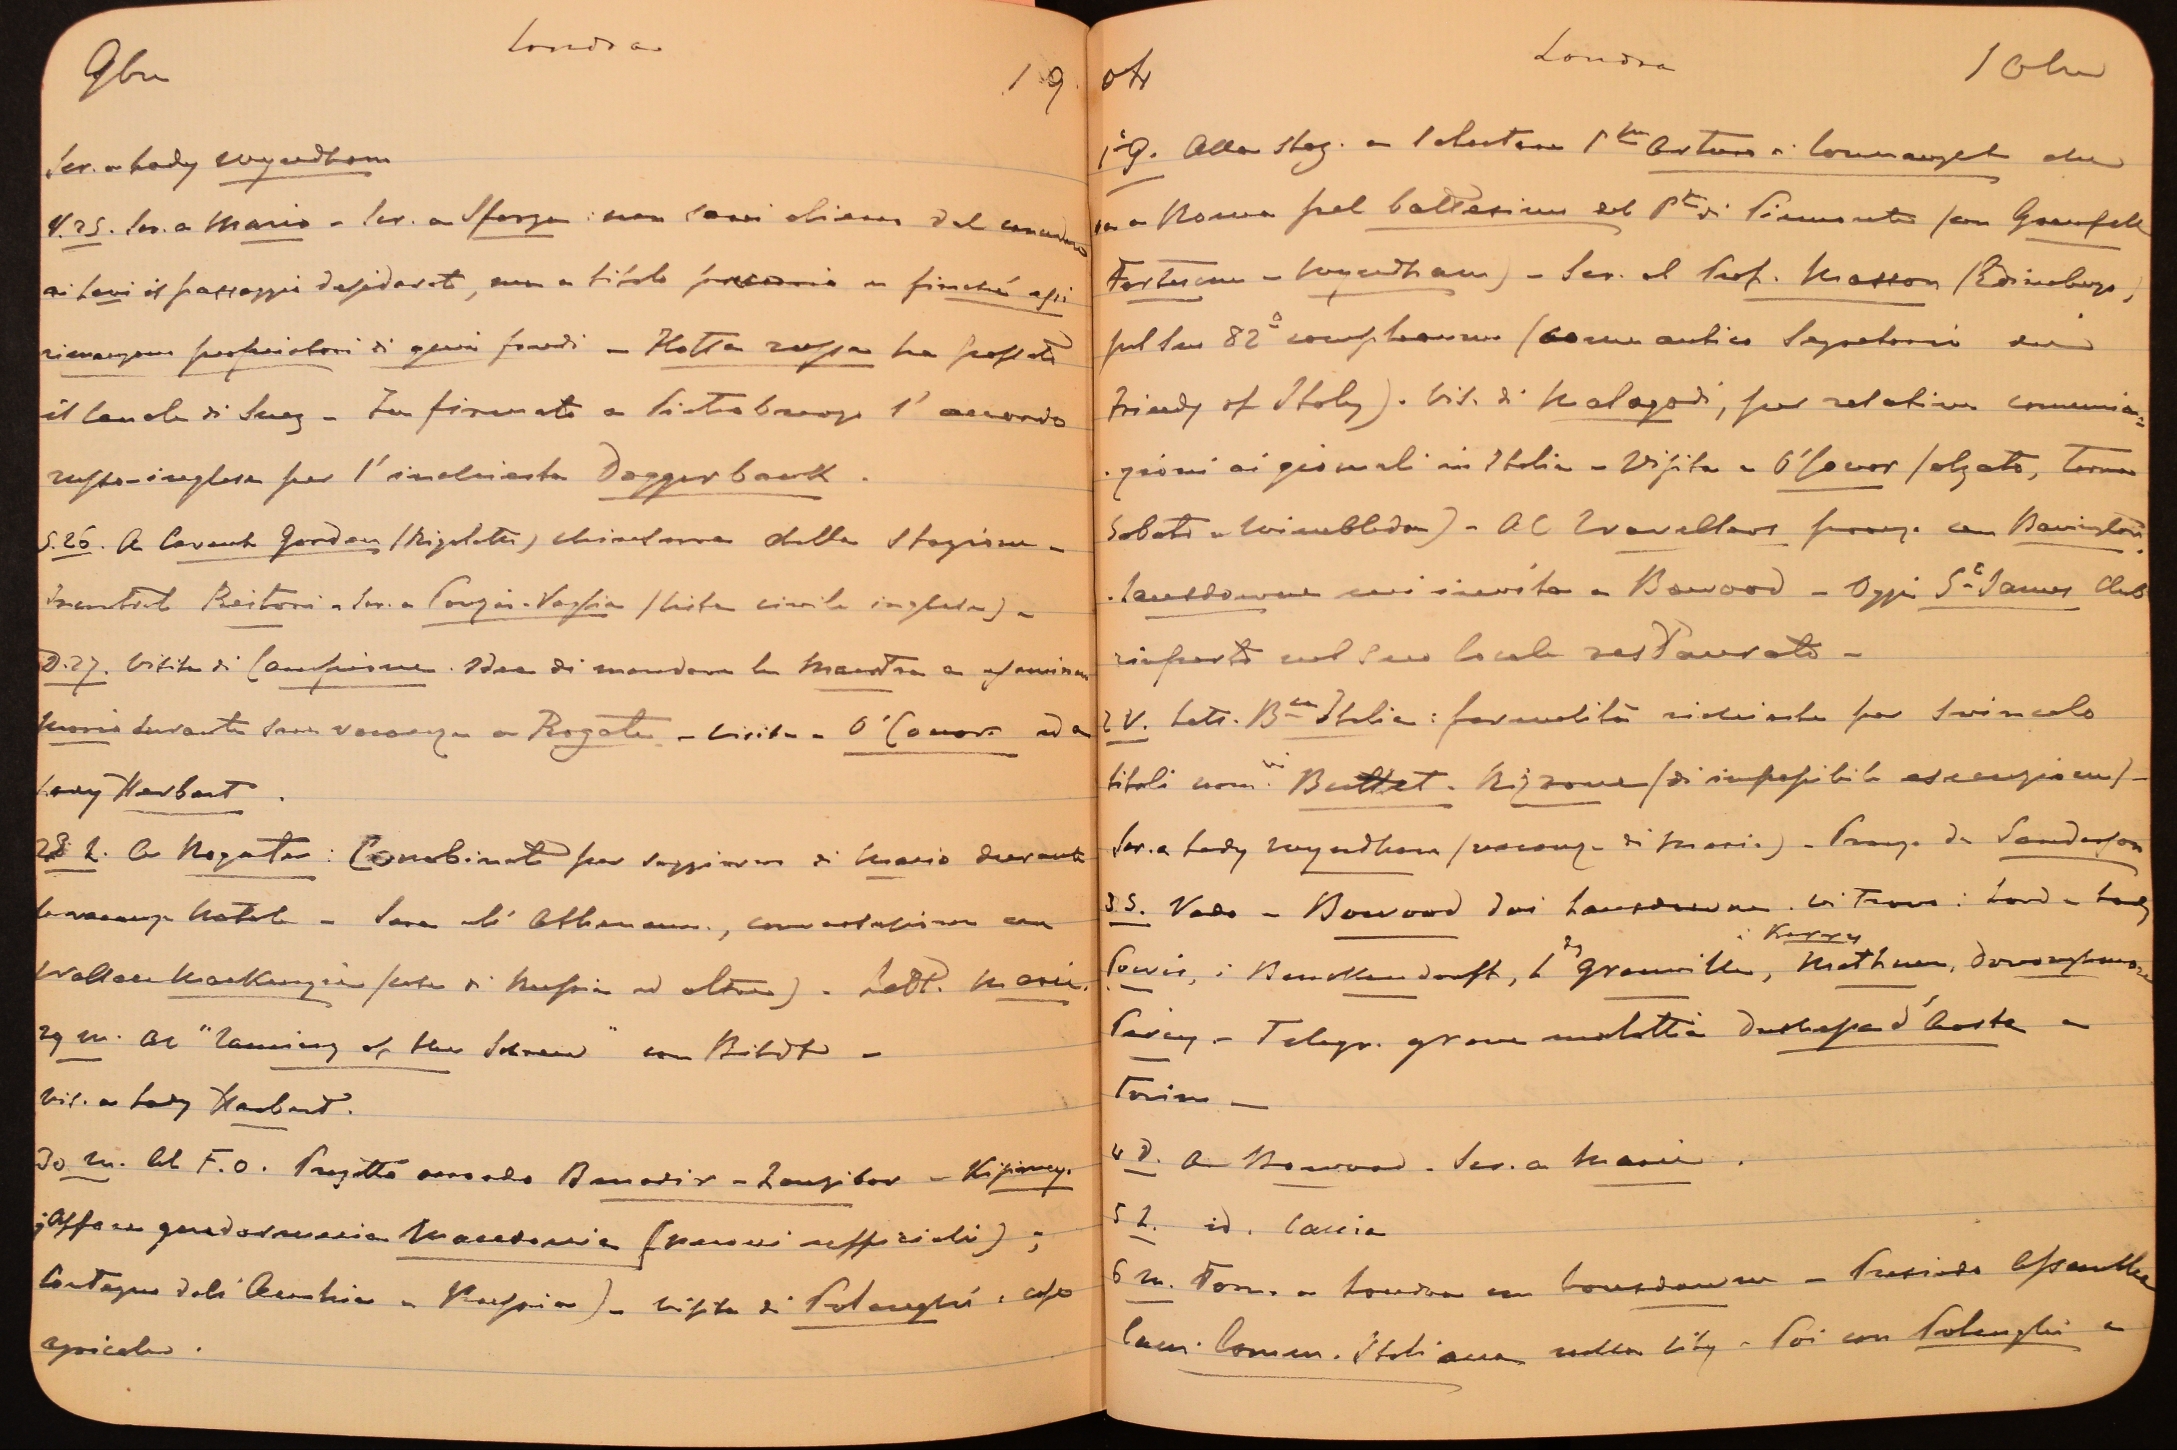 9bre Londra 19
Scr. a Lady Wyndham
V. 25. Scr. a Mario - Scr. a Sforza: non sarei alieno dal concedere
ai il passaggio desiderato, ma a titolo precario e finché essi
rimangono proprietori di quei fondi - Flotta russa ha passato
il Canale di Suez - Fu firmato a Pietroburgo l'accordo
russo-inglese per l'inchiesta Doggerbank.
S. 26. A Covent Garden (Rigoletto) chiusura della stagione -
Incontrato - Scr. a (lista civile inglese) -
D. 27. Visita di Campione. Idea di mandare la Maestra a esaminare
Mario durante sua vacanza a Rogate - Visita a O'Conor ed a
Lady Herbert.
28 L. A Rogate: Combinato per soggiorno di Mario durante
le vacanze Natale - Sera all'Athenaeum, conversazione con
Wallace Mackenzie (cose di Russia ed altre) - Lett. Mario.
29 M. Al "Taming of the Schrew" con Bildt -
Vis. a Lady Herbert.
30 M. Al F.O. Progetto accordo Benadir - Zanzibar -
Affare gendarmeria Macedonia (nuovi ufficiali);
Contegno dell'Austria e Russia) - Visita di Polenghi: cose
agricole.
04 Londra 10bre
1 G. Alla staz. a salutare Arturo di Connaught che
va a Roma pel battesimo del Pte di Piemonte (con Grenfell
- Wyndham) - Scr. al Prof. Masson (Edimburgo)
pel suo 82º compleanno (come antico Segretario dei
Friends of Italy). Vis. di Malagodi, per relative comunica=
zioni ai giornali in Italia - Visita a O'Conor (alzato, torna
Sabato a Wimbledon) - Al Travellers pranzo con
Lansdowne mi invita a Bowood - Oggi St James Club
riaperto nel suo locale restaurato -
2 V. Lett. Bca Italia: formalità richieste per svincolo
titoli nom.vi Buttet. Rizzone (di impossibile esecuzione) -
Scr. a Lady Wyndham (vacanze di Mario) - Pranzo da Sanderson
3 S. Vado a Bowood dai Lansdowne. Vi trovo: Lord e Lady
Powis, i Benckendorff, Ld Granville, i Kerry, Methuen, Donoughmore
Percy - Telegr. grave malattia Duchessa d'Aosta a
Torino -
4 D. A Bowood. Scr. a Mario.
5 L. id. Caccia
6 M. Torno a Londra con Lansdowne - Presiedo Assemblea
Cam. Comm. Italiana nella City - Poi con Polenghi a